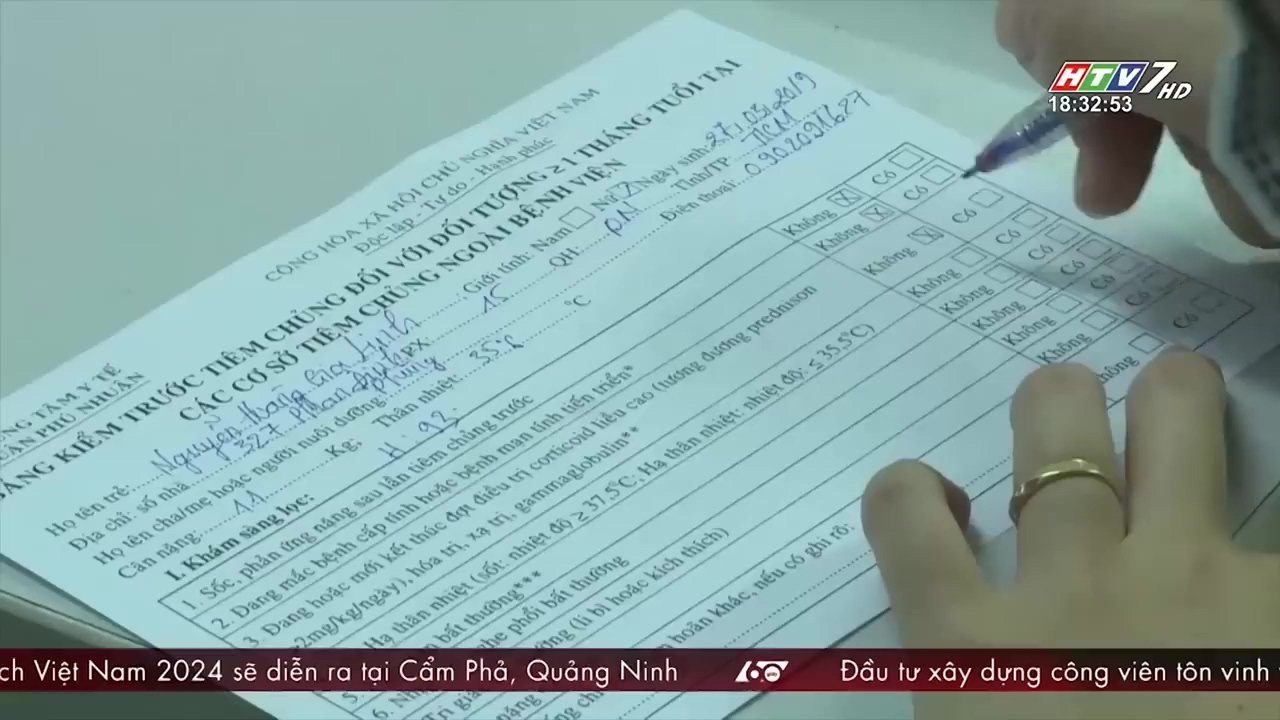 HTV7 HD
18:32:53
CỘNG HÒA XÃ HỘI CHỦ NGHĨA VIỆT NAM
Độc lập - Tự do - Hạnh phúc
TÂM Y TẾ
PHÚ NHUẬN
BẢNG KIỂM TRƯỚC TIÊM CHỦNG ĐỐI VỚI ĐỐI TƯỢNG ≥ 1 THÁNG TUỔI TẠI
CÁC CƠ SỞ TIÊM CHỦNG NGOÀI BỆNH VIỆN
Họ tên trẻ: Nguyễn Hoàng Gia Linh Giới tính: Nam Nữ Ngày sinh: 27/03/2019
Địa chỉ: số nhà 327 PX 15 QH: PN Tỉnh/TP HCM
Họ tên cha/mẹ hoặc người nuôi dưỡng: Điện thoại: 0902091627
Cân nặng: 11 Kg; Thân nhiệt: 35 °C
H: 93
I. Khám sàng lọc:
1. Sốc, phản ứng nặng sau lần tiêm chủng trước Không Có
2. Đang mắc bệnh cấp tính hoặc bệnh mạn tính tiến triển* Không Có
3. Đang hoặc mới kết thúc đợt điều trị corticoid liều cao (tương đương prednison
≥2mg/kg/ngày), hóa trị, xạ trị, gammaglobulin** Không Có
Hạ thân nhiệt (sốt: nhiệt độ ≥ 37,5°C; Hạ thân nhiệt: nhiệt độ: ≤ 35,5°C) Không Có
bất thường*** Không Có
nghe phổi bất thường Không Có
(li bì hoặc kích thích) Không Có
hoãn khác, nếu có ghi rõ: Không Có
ch Việt Nam 2024 sẽ diễn ra tại Cẩm Phả, Quảng Ninh 60 giây Đầu tư xây dựng công viên tôn vinh